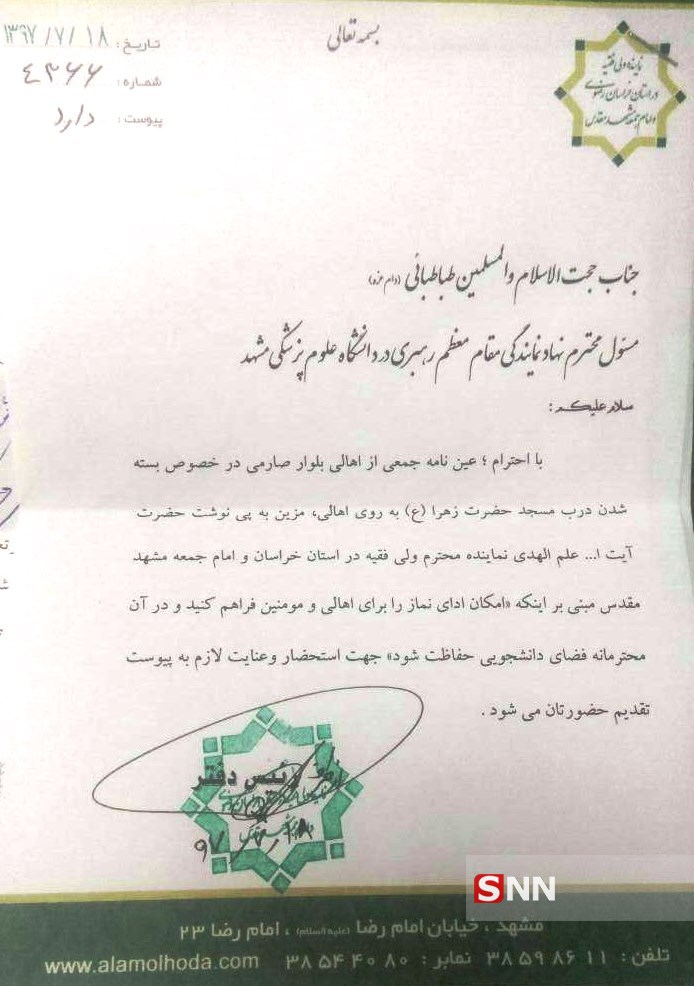 بسمه تعالی
تاریخ: ۱۳۹۷/۷/۱۸
شماره: ۴۳۶۶
پیوست: دارد
نماینده ولی فقیه
در استان خراسان رضوی
و امام جمعه مشهد مقدس
جناب حجت الاسلام والمسلمین طباطبائی (دام عزه)
مسئول محترم نهاد نمایندگی مقام معظم رهبری در دانشگاه علوم پزشکی مشهد
سلام علیکم:
با احترام ؛ عین نامه جمعی از اهالی بلوار صارمی در خصوص بسته
شدن درب مسجد حضرت زهرا (ع) به روی اهالی، مزین به پی نوشت حضرت
آیت ا... علم الهدی نماینده محترم ولی فقیه در استان خراسان و امام جمعه مشهد
مقدس مبنی بر اینکه «امکان ادای نماز را برای اهالی و مومنین فراهم کنید و در آن
محترمانه فضای دانشجویی حفاظت شود» جهت استحضار وعنایت لازم به پیوست
تقدیم حضورتان می شود .
رئیس دفتر
۹۷/۷/۱۸
SNN
مشهد ، خیابان امام رضا (علیه السلام) ، امام رضا ۲۳
تلفن: ۱۱ ۸۶ ۵۹ ۳۸ نمابر: ۸۰ ۴۰ ۵۴ ۳۸ www.alamolhoda.com